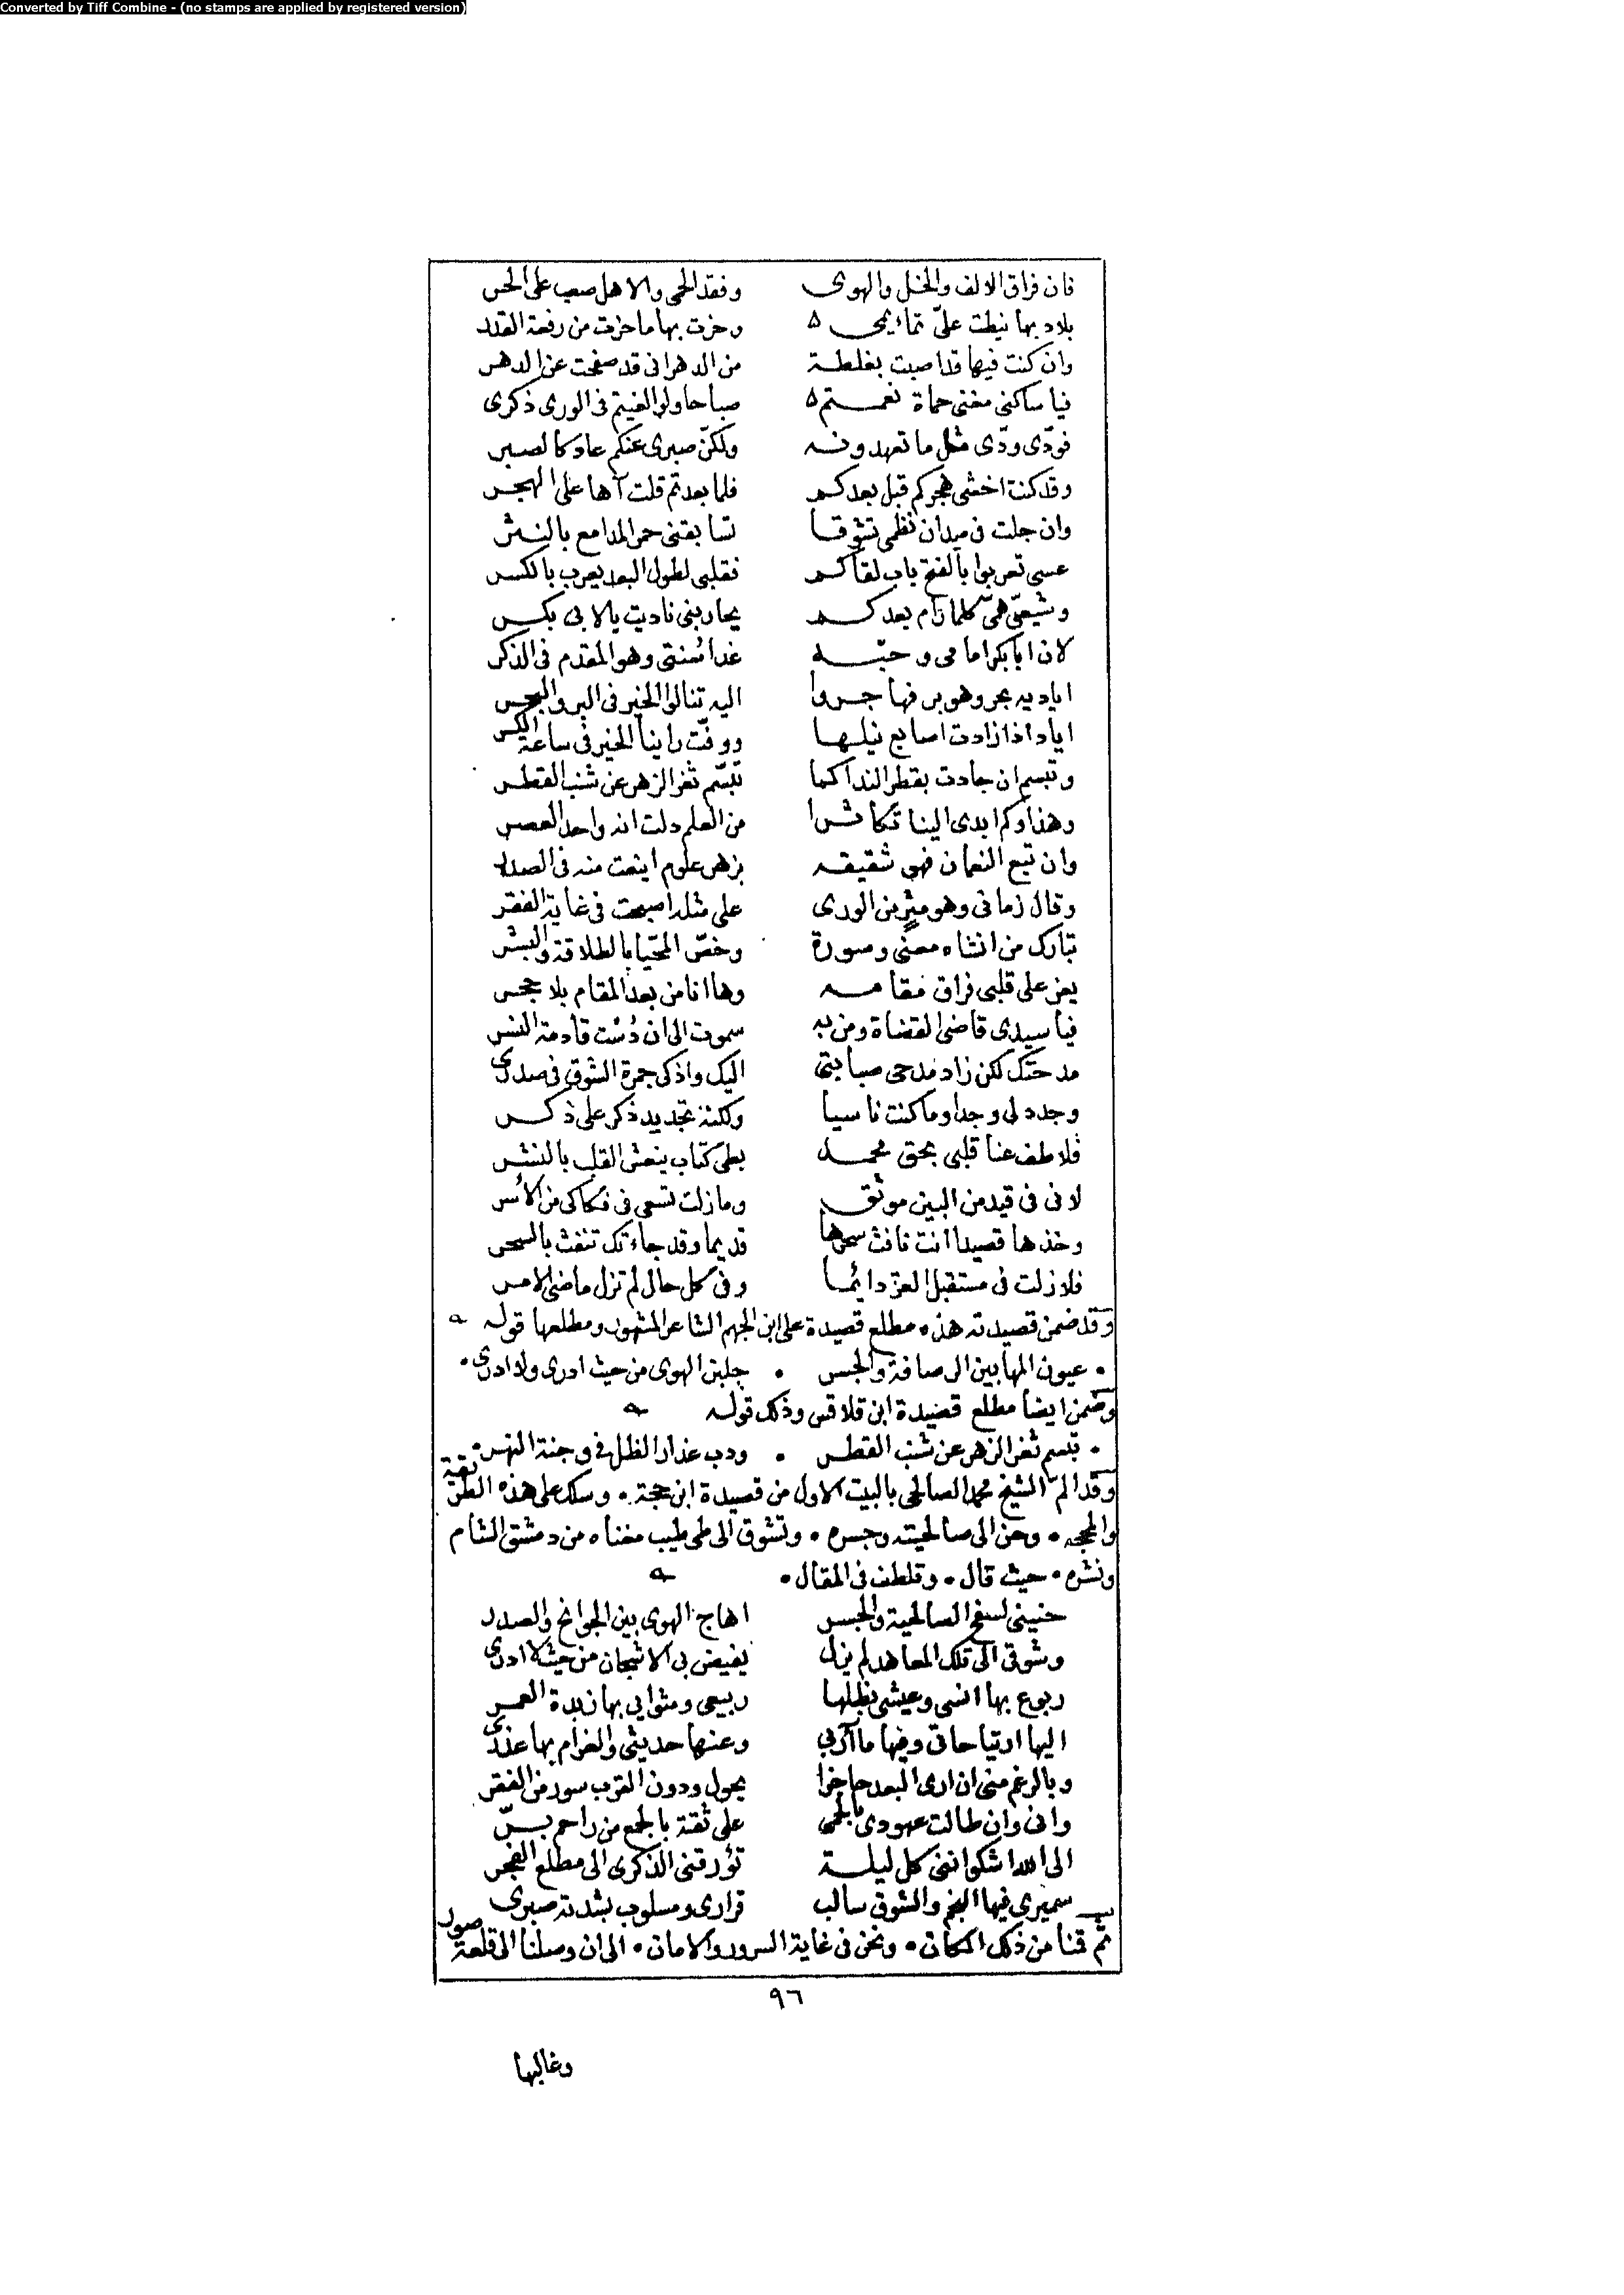 Converted by Tiff Combine - (no stamps are applied by registered version)
فان فراق الالف والخل والهوى وفقد الحمى والاهل صعب على الحر
بلاد بها نيطت علىّ تمائمى وحزت بها ما حزت من رفعة القدر
وان كنت فيها قد اصبت بغلطة من الدهر انى قد صفحت عن الدهر
فيا ساكنى مغنى حماة نعمتم صباحا ولو الغيتم فى الورى ذكرى
فودّى ودّى مثل ما تعهدونه ولكنّ صبرى عنكم عاد كالصبر
وقد كنت اخشى هجركم قبل بعدكم فلما بعدتم قلت آها على الهجر
وان جلت فى ميدان نظمى تشوقا تسابقنى حمر المدامع بالنثر
عسى تعربوا بالفتح باب لقاكم فقلبى لطول البعد يعرب بالكسر
وشيعىّ همّى كلما رام بعدكم يحاربنى ناديت يالابى بكر
لان ابا بكر امامى وحبّه غدا سنتى وهو المقدم فى الذكر
اياديه بحر وهو بر فهاجروا اليه تنالوا الخير فى البر والبحر
اياد اذا زادت اصابع نيلها ووفّت راينا الخير فى ساعة الكسر
وتبسم ان جادت بقطر الندا كما تبسّم ثغر الزهر عن شنب القطر
وهذا وكم ابدى الينا تكاثرا من العلم دلت انه واحد العصر
وان تبع النعمان فهو شقيقه بزهر علوم اينعت منه فى الصدر
وقال زمانى وهو مثرٍ بن الورى على مثله اصبحت فى غاية الفقر
تبارك من انشاه معنى وصورة وخصّ المحيّا بالطلاقة والبشر
يعز على قلبى فراق مقامه وها انا من بعد المقام بلا حجر
فيا سيدى قاضى القضاة ومن به سموت الى ان دُست قادمة النسر
مدحتك لكن زاد مدحى صبابتى اليك واذكى جمرة الشوق فى صدرى
وجدد لى وجدا وما كنت ناسيا ولكنه تجديد ذكر على ذكر
فلاطف عنا قلبى بحق محمد بطى كتاب ينعش القلب بالنشر
لانى فى قيد من البين موثق وما زلت تسعى فى فكاكى من الأسر
وخذها قصيدا انت نافث سحرها قديما وقد جاءتك تنفث بالسحر
فلا زلت فى مستقبل العز دائما وفى كل حال لم تزل ماضى الامر
وقد ضمن قصيدته هذه مطلع قصيدة على ابن الجهم الشاعر المشهور ومطلعها قوله
• عيون المها بين الرصافة والجسر • جلبن الهوى من حيث ادرى ولا ادرى •
وضمن ايضا مطلع قصيدة ابن قلاقس وذلك قوله
• تبسم ثغر الزهر عن شنب القطر • ودب عذار الظل فى وجنة النهر •
وقد المّ الشيخ محمد الصالحى بالبيت الاول من قصيدة ابن حجة • وسلك على هذه الطريقة
والمحجه • وحن الى صالحيته وجسره • وتشوق الى طى طيب مغناه من دمشق الشام
ونشره • حيث قال • وتلطف فى المقال •
حنينى لسفح الصالحية والجسر اهاج الهوى بين الجوانح والصدر
وشوقى الى تلك المعاهد لم يزل يفيض بى الاشجان من حيث لا ادرى
ربوع بها انسى وعيشى بظلها ربيعى ومثوايى بها زبدة العمر
اليها ارتياحاتى وفيها مآربى وعنها حديثى والغرام بها عذرى
وبالرغم منى ان ارى البعد حاجزا يحول ودون القرب سور من الفقر
وانى وان طالت عهودى بالحمى على ثقة بالجمع من راحم برّ
الى الله اشكو اننى كل ليلة تؤرقنى الذكرى الى مطلع الفجر
سميرى فيها النجم والشوق سالب قرارى ومسلوب بشدته صبرى
ثم قمنا من ذلك المكان • ونحن فى غاية السرور والامان • الى ان وصلنا الى قلعة صور
٩٦
وغالبها